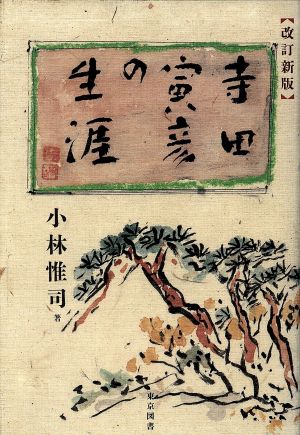 【改訂新版】
寺田
寅彦
の
生涯
小林惟司 著
東京図書